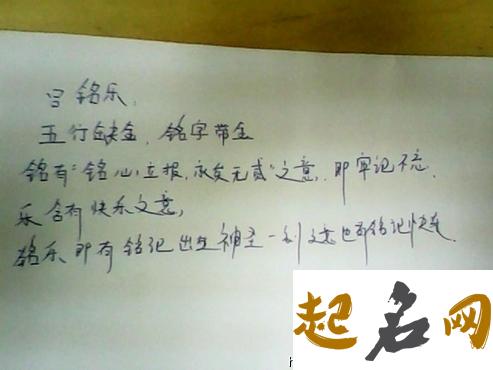 吕铭乐,
五行缺金,铭字带金
铭有“铭心立报,永矢无贰”之意,即牢记不忘.
乐含有快乐之意,
铭乐即有铭记出生神圣一刻之意也有铭记快乐.
起名网
h